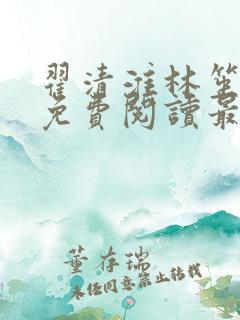 翟清淮林笙
免費閱讀最
董存瑞
未经同意禁止转载